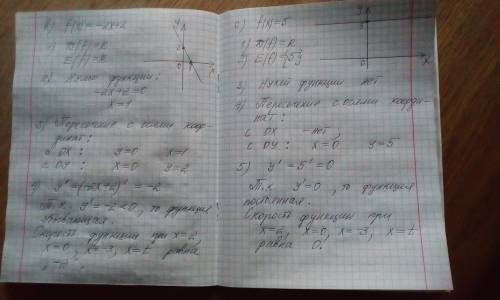 в) f(x)=-2x+2
1) D(f)=R
E(f)=R
2) Нули функции:
-2x+2=0
x=1
3) Пересечение с осями коор-
динат:
с OX: y=0 x=1
с OY: x=0 y=2
4) y'=(-2x+2)'=-2
Т.к. y'=-2<0, то функция
убывающая.
Скорость функции при x=2,
x=0, x=-3, x=t равна
y
x
0
с) f(x)=5
1) D(f)=R
2) E(f)={5}
3) Нулей функции нет
4) Пересечение с осями коорди-
нат:
с OX - нет,
с OY: x=0 y=5
5) y'=5'=0
Т.к. y'=0, то функция
постоянная.
Скорость функции при
x=2, x=0, x=-3, x=t
равна 0.
y
x
0